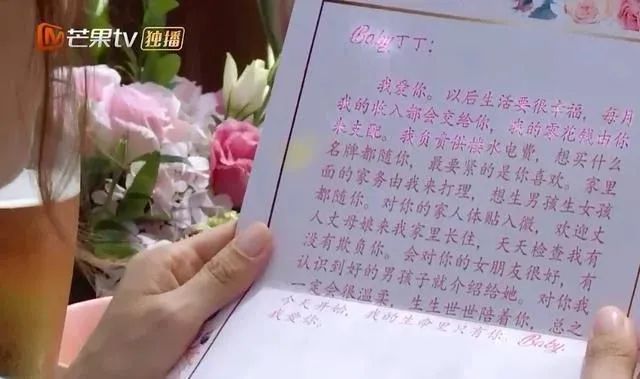 芒果tv 独播
Baby丁丁：
我爱你。以后生活要很幸福，每月
我的收入都会交给你，我的零花钱由你
来支配。我负责供楼水电费，想买什么
名牌都随你，最要紧的是你喜欢。家里
面的家务由我来打理，想生男孩生女孩
都随你。对你的家人体贴入微，欢迎丈
人丈母娘来我家里长住，天天检查我有
没有欺负你。会对你的女朋友很好，有
认识到好的男孩子就介绍给她。对你我
一定会很温柔，生生世世陪着你，总之
今天开始，我的生命里只有你，Baby
我爱你。